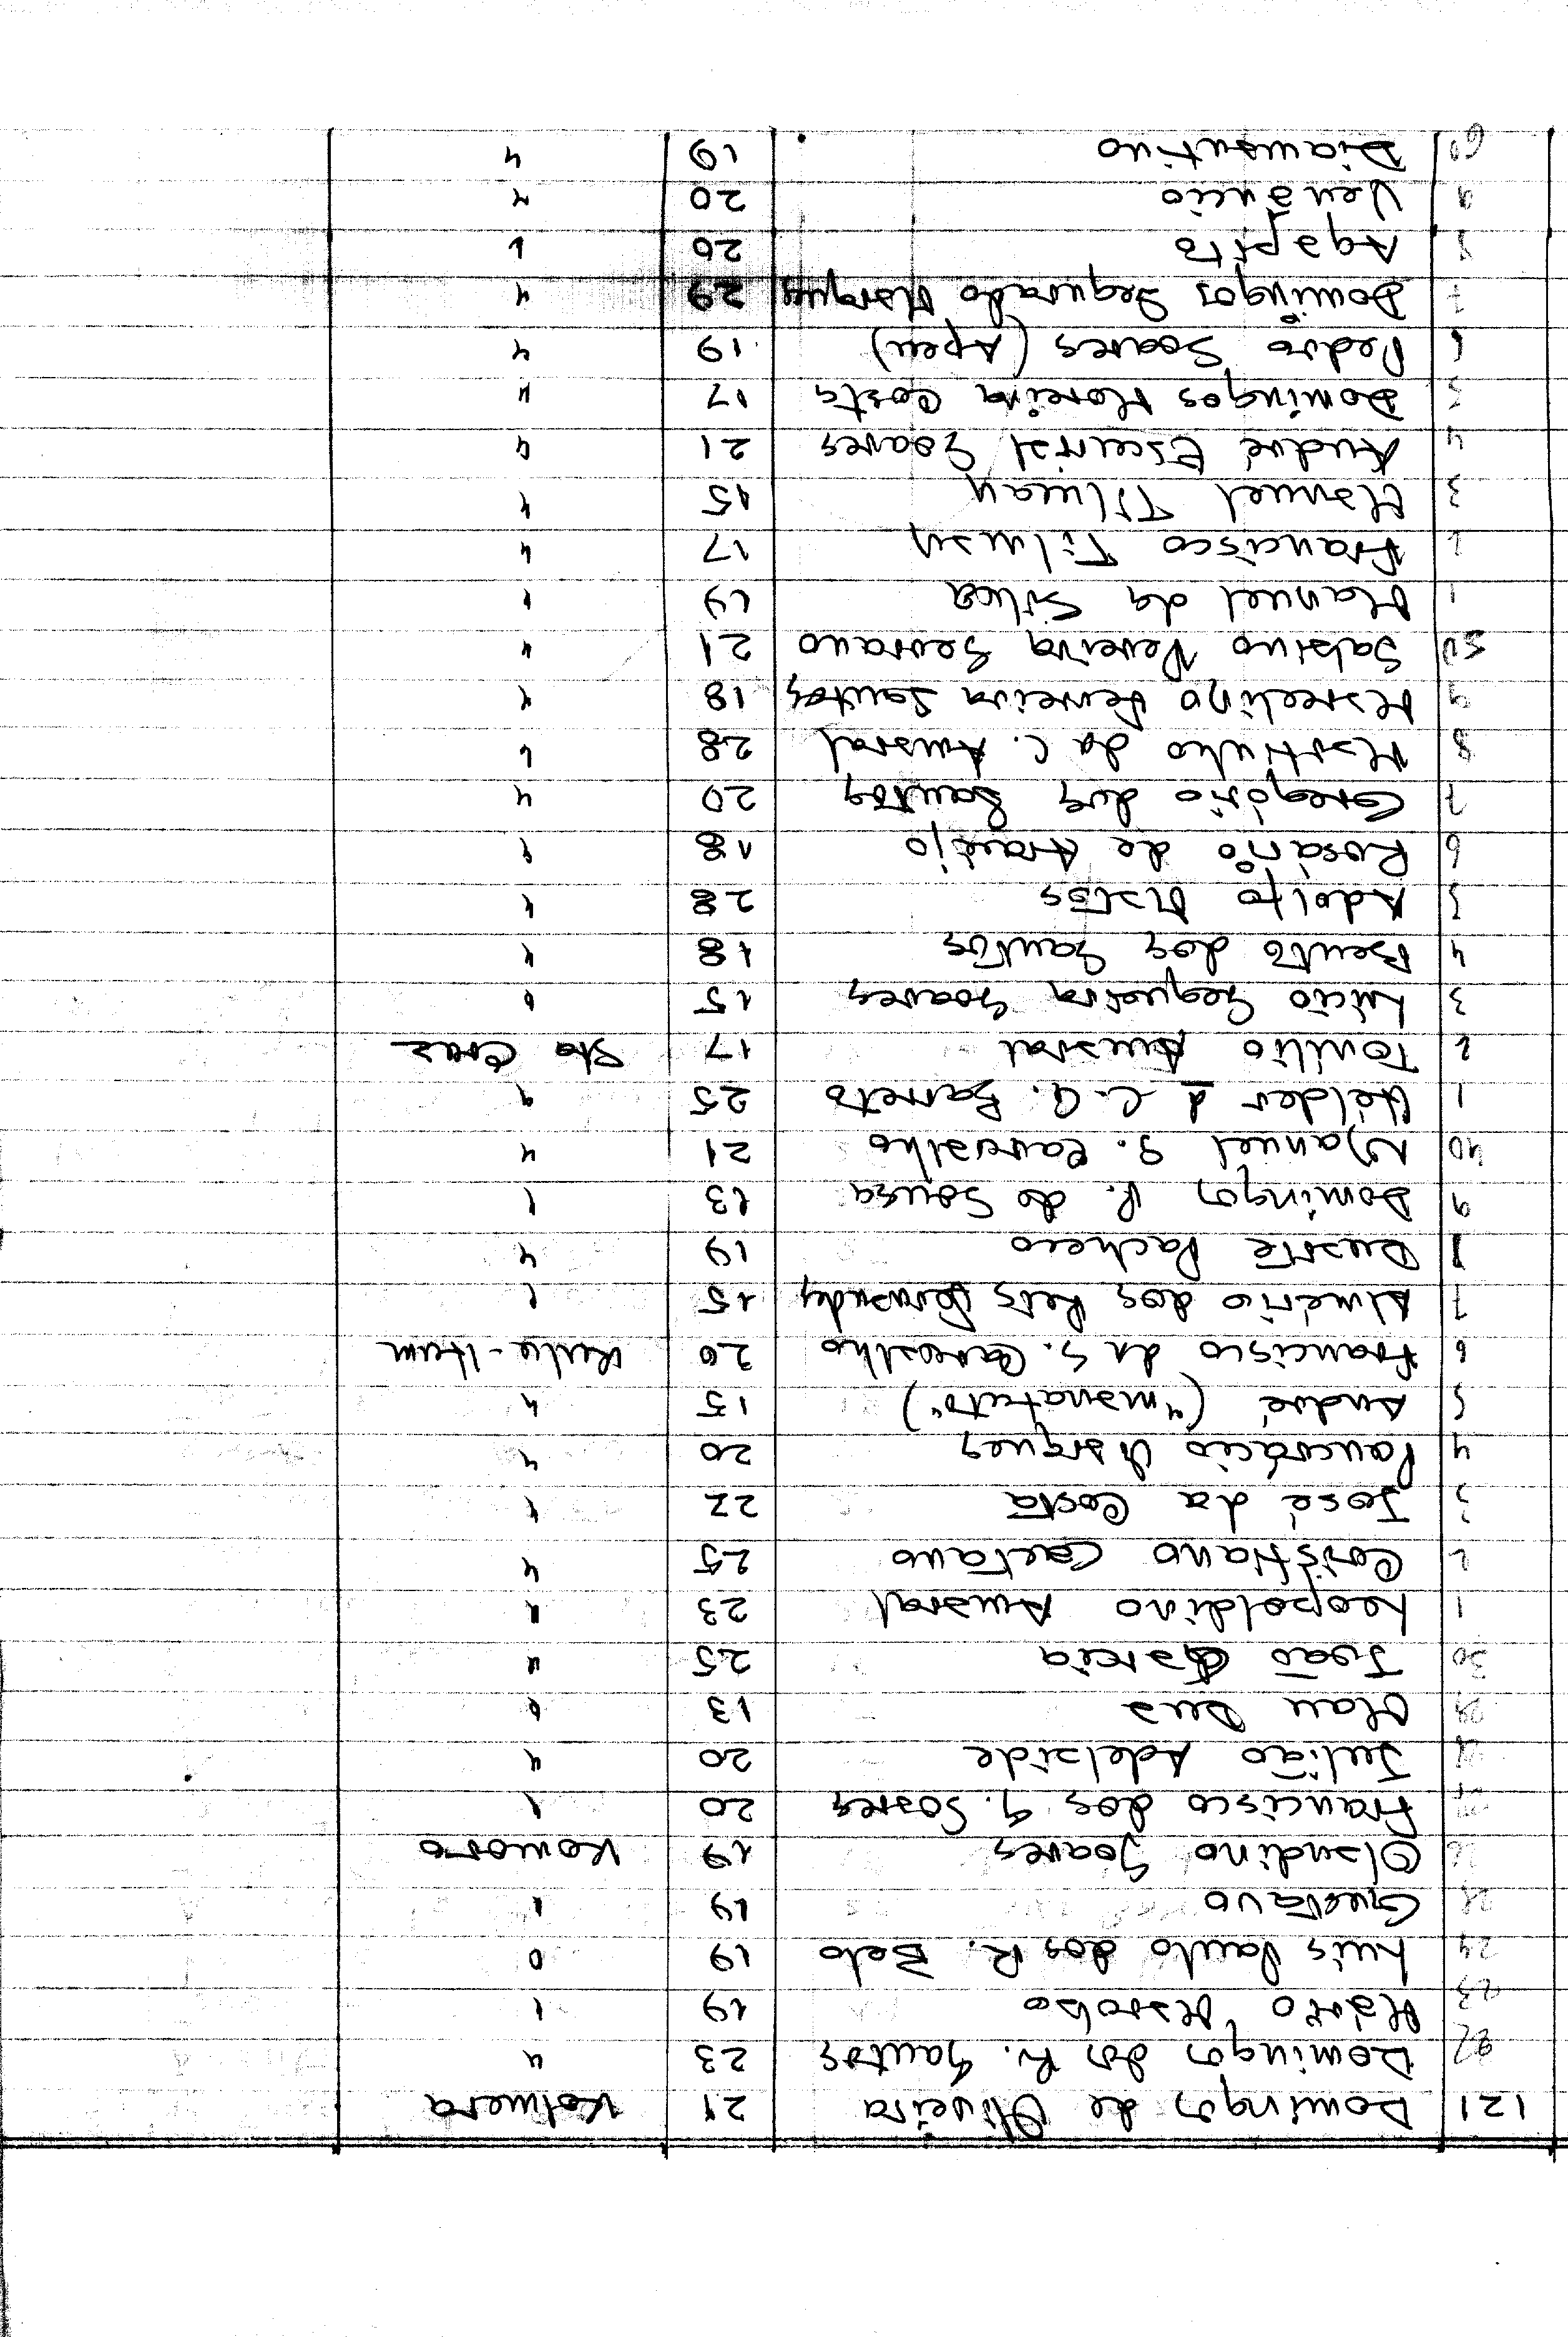 121 Domingos de Oliveira 21 Kotmera
22 Domingos dos R. Santos 23 "
23 Mário Maroko 19 "
24 Luis Paulo dos R. Belo 19 "
Gustavo 19 "
Olandino Soares 19 Komoro
Francisco dos S. Soares 20 "
Julião Adelaide 20 "
29 Mau Dua 13 "
30 João Garcia 25 "
1 Leopoldino Amaral 23 "
2 Cristiano Caetano 25 "
3 José da Costa 22 "
4 Pancrácio Marques 20 "
5 André ("manatuto") 15 "
6 Francisco da S. Carvalho 20 Kulu-Hum
7 Almério dos Reis Fernandes 15 "
8 Duarte Pacheco 19 "
9 Domingos P. de Sousa 13 "
40 Manuel S. Carvalho 21 "
1 Helder A. C. G. Barreto 25 "
2 Toulilo Amaral 17 Sta Cruz
3 Lúcio Sequeira Soares 15 "
4 Bento dos Santos 18 "
5 Adolfo Matos 28 "
6 Rosário de Araújo 18 "
7 Gregório dos Santos 20 "
8 Martinho da C. Amaral 28 "
9 Marcelino Pereira Santos 18 "
50 Sabino Pereira Serrano 21 "
1 Manuel da Silva 19 "
2 Francisco Tilman 17 "
3 Manuel Tilman 15 "
4 André Escurial Soares 21 "
5 Domingos Moreira Costa 17 "
6 Pedro Soares (Apeu) 19 "
7 Domingos Segurado Marques 29 "
8 Agapito 20 "
9 Venâncio 20 "
60 Diamantino 19 "